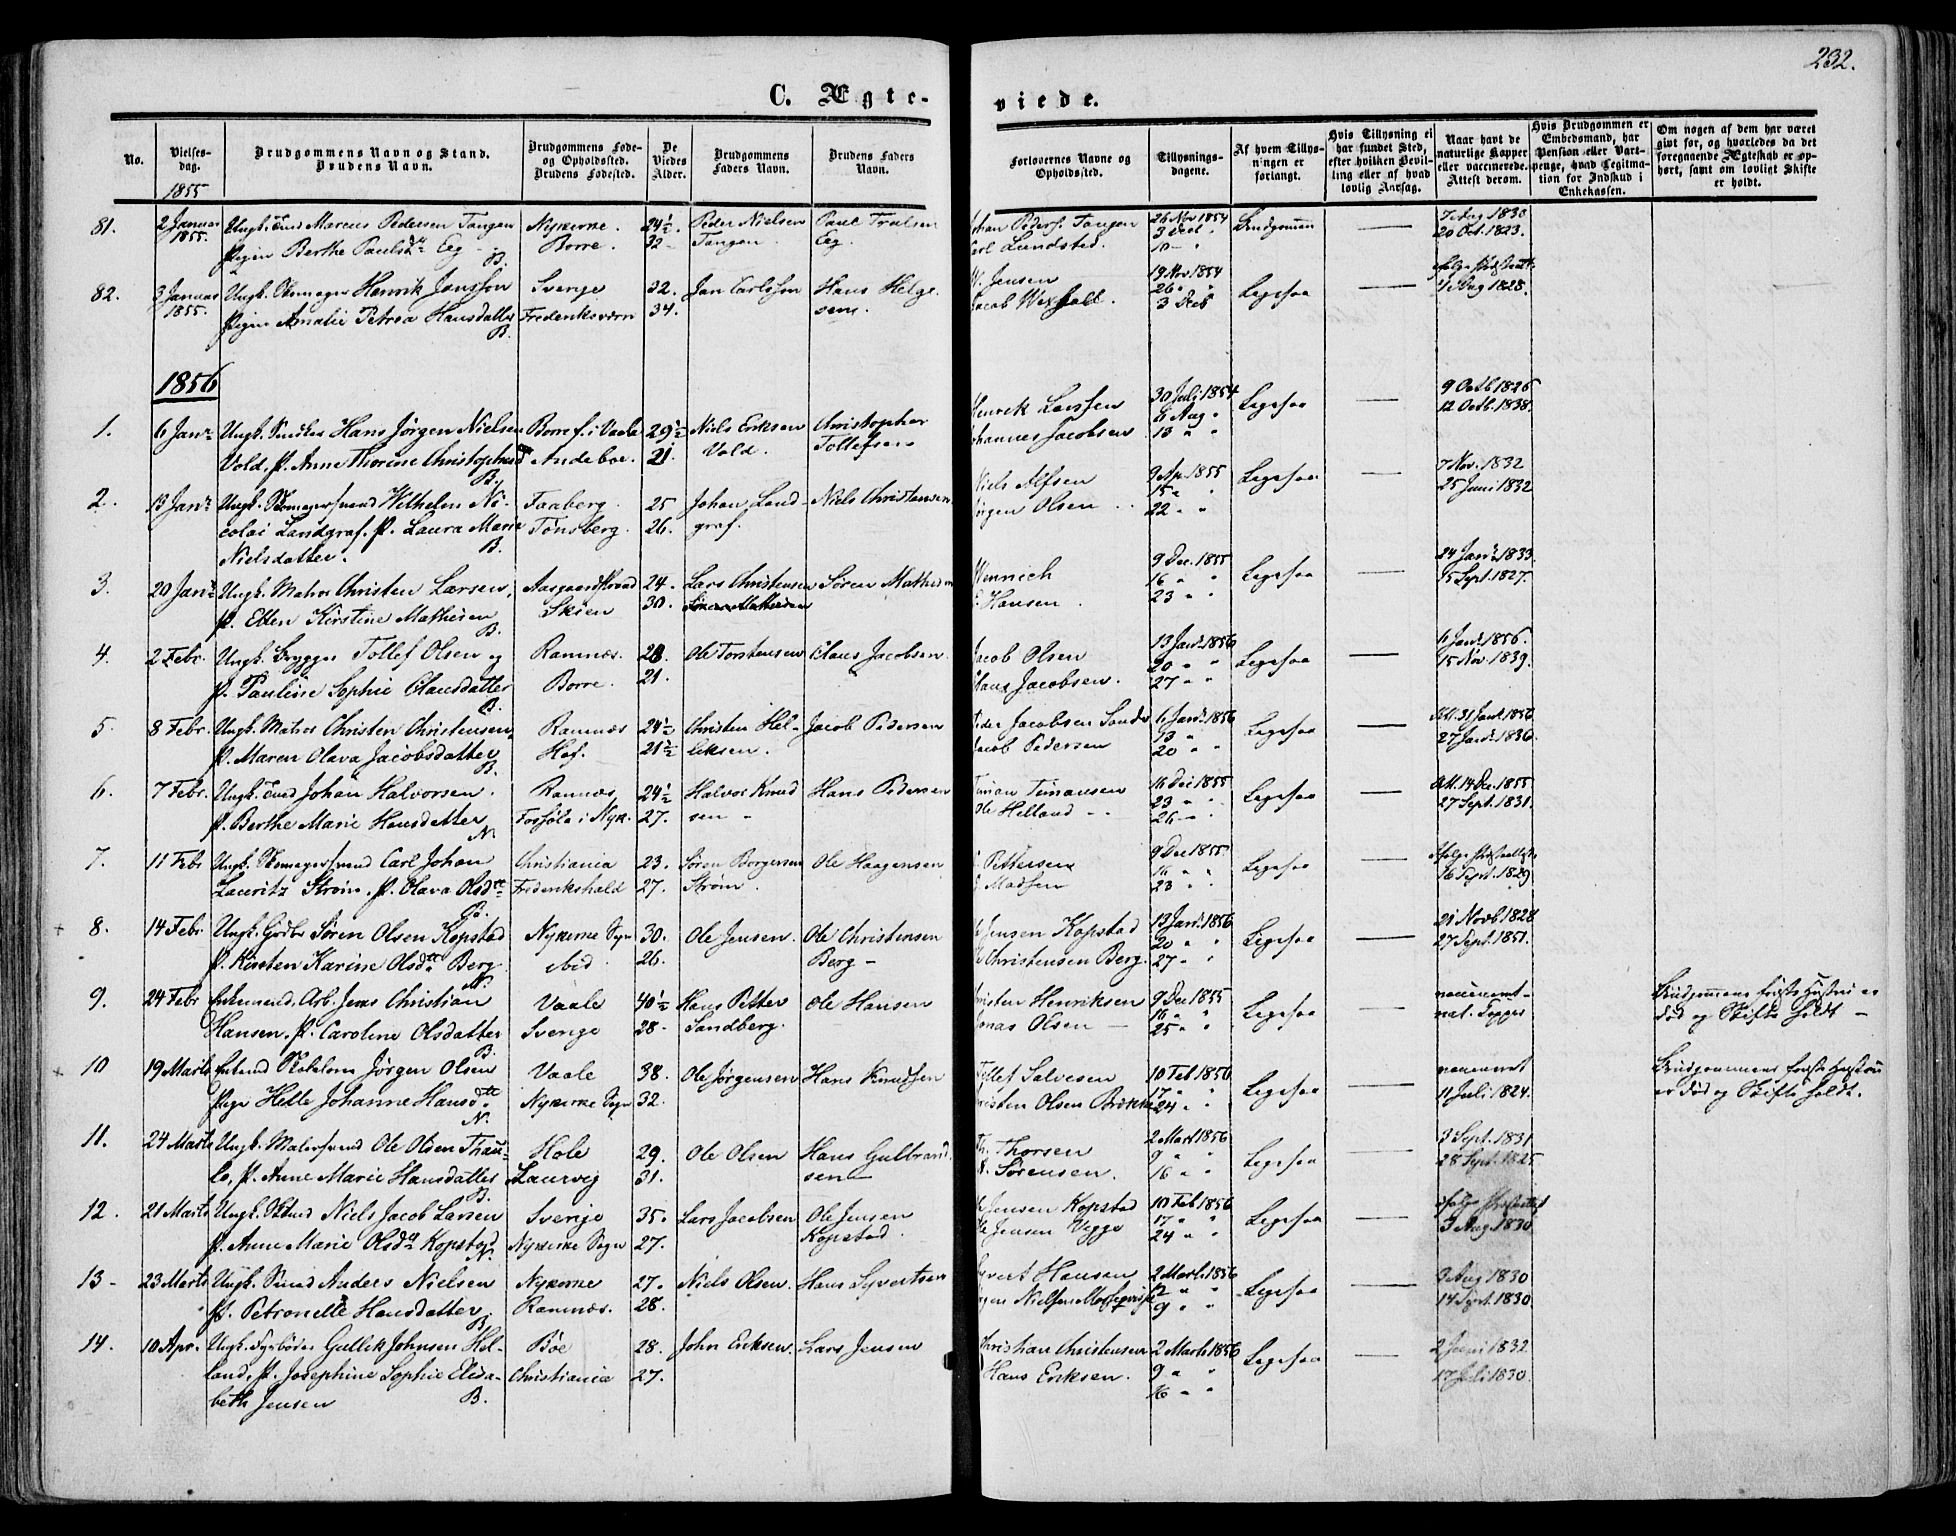 232.
C. Ægte-
viede.
No.
Vielses-
dag.
Brudgommens Navn og Stand.
Brudens Navn.
Brudgommens Føde-
og Opholdsted.
Brudens Fødested.
De
Viedes
Alder.
Brudgommens
Faders Navn.
Brudens Faders
Navn.
Forlovernes Navne og
Opholdsted.
Tillysnings-
dagene.
Af hvem Tillys-
ningen er
forlangt.
Hvis Tillysning ei
har fundet Sted,
efter hvilken Bevil-
ling eller af hvad
lovlig Aarsag.
Naar havt de
naturlige Kopper
eller vaccinerede.
Attest derom.
Hvis Brudgommen er
Embedsmand, har
Pension eller Vart-
penge, hvad Legitima-
tion for Indskud i
Enkekassen.
Om nogen af dem har været
givt før, og hvorledes da det
foregaaende Ægteskab er op-
hørt, samt om lovligt Skifte
er holdt.
1855
81. 2 Januar Ungk. Marcus Pedersen Tangen Nykirke. 24½. Peder Nielsen Paul
1855. Pigen Berthe Paulsd. Eeg B. Borre. 32 Tangen. Eeg.
Johan Peders. Tangen 26 Nov 1854 Brudgommen — 7 Aug 1830
Carl Lundsted. 3 Dec 10 20 Oct. 1823.
82. 3 Januar Ungk. Skomager Henrik Jansson Sverige 32. Jan Carlsson Hans Helge-
1855. Pigen Amalie Petrea Hansdatter B. Frederiksværn 34. sen.
W. Jensen 19 Nov 1854 Ligesaa —
Jacob Wexhall. 26 3 Dec 11 Aug 1828.
1856
1. 6 Janr Ungk. Snedker Hans Jørgen Nielsen Borre f. i Vaale 29½ Niels Eriksen Christopher
Vold, P. Anne Thorine Christophersd B. Andeboe. 21. Vold. Tollefsen
Henrik Larssen 30 Juli 1854 Ligesaa — 9 Octb 1826
Johannes Jacobsen 6 Aug 13 12 Octb. 1838.
2. 13 Janr Ungk. Skomagersvend Wilhelm Ni- Faaberg. 25 Johan Land- Niels Christensen
colai Landgraf. P. Laura Marie Tønsberg. 26. graf.
Nielsdatter. B.
Niels Alfsen 9 Ap. 1855 Ligesaa — 7 Nov. 1832
Jørgen Olsen 15 22 25 Juni 1832
3. 20 Janr Ungk. Matros Christen Larsen, Aasgaardstrand 24. Lars Christensen Søren Mathisen
P. Ellen Kirstine Mathisen B. Skien 30.
Wennich 9 Dec. 1855 Ligesaa — 24 Janr 1833
Hansen. 16 23 15 Sept. 1827.
4. 2 Febr. Ungk. Brygger Tollef Olsen og Ramnæs. 28. Ole Torstensen Claus Jacobsen.
P. Pauline Sophie Clausdatter B. Borre. 21.
Jacob Olsen 13 Janr 1856 Ligesaa — 6 Janr 1856.
Claus Jacobsen. 20 27 15 Nov. 1839.
5. 8 Febr. Ungk. Matros Christen Christensen, Ramnæs 24½ Christen Hel- Jacob Pedersen
P. Maren Olava Jacobsdatter B. Hof. 21½ liksen.
Peder Jacobsen Sande 6 Janr 1856 Ligesaa — Att. 31 Janr 1856.
Jacob Pedersen 13 20 27 Janr 1836.
6. 7 Febr. Ungk. Johan Halvorsen. Ramnæs 24½ Halvor Knud- Hans Pedersen
P. Berthe Marie Hansdatter N. i Nyk. 27. sen
Timan Timansen 16 Dec 1855 Ligesaa — Att. 14 Dec. 1855
Ole Helland 23 26 27 Sept. 1831.
7. 11 Febr Ungk. Skomagersvend Carl Johan Christiania 23. Søren Borgersen Ole Haagensen
Lauritz Strøm. P. Olava Olsdtr B. Frederikshald 27. Strøm.
Pettersen 9 Dec 1855 Ligesaa —
Madsen 16 23 16 Sept. 1829
8. 14 Febr Ungk. Gdbr Søren Olsen Kopstad Nykirke Sogn 30. Ole Jensen. Ole Christensen
P. Kirsten Karine Olsdtr Berg. N. ibid 26. Berg
Jensen Kopstad 13 Janr 1856 Ligesaa — 21 Novb 1828
Christensen Berg. 20 27 27 Sept. 1851.
9. 24 Febr Enkemand, Arb. Jens Christian Vaale 40½ Hans Petter Ole Hansen
Hansen, P. Caroline Olsdatter B. Sverige 28. Sandberg.
Christen Henriksen 9 Dec 1855 Ligesaa — vaccineret
Jonas Olsen 16 25 nat. Kopper
Brudgommens første Hustru er
død og Skifte holdt
10 19 Marts Enkemd Skolelærer Jørgen Olsen Vaale 38. Ole Jørgensen Hans Knudsen
Pige Helle Johanne Hansdtr N. Nykirke Sogn 32.
Tollef Salvesen 10 Feb 1856 Ligesaa — vaccineret
Christen Olsen Brekke 17 24 11 Juli 1824.
Brudgommens første Hustru
er død og Skifte holdt.
11. 24 Marts Ungk. Malersvend Ole Olsen Thau- Hole 29. Ole Olsen Hans Gulbrand
lo, P. Anne Marie Hansdatter B. Laurvig 31. sen
Th. Thorsen 2 Mart 1856 Ligesaa — 3 Sept. 1831
Sørensen. 9 16 28 Sept. 1825
12. 21 Marts Ungk. Niels Jacob Larsen Sverige 35. Lars Jacobsen Ole Jensen
P. Anne Marie Olsdtr Kopstad N. Nykirke Sogn 27. Kopstad.
Jensen Kopstad 10 Feb 1856 Ligesaa —
Ole Jensen Vegge 17 24 3 Aug. 1830
13 23 Marts Ungk. Smed Anders Nielsen Nykirke 27. Niels Olsen. Hans Syvertsen
P. Petronelle Hansdatter. B. Ramnæs. 28.
Syvert Hansen 2 Mart. 1856 Ligesaa — 3 Aug 1830
Nielsen 9 14 Sept. 1830.
14. 10 Apr. Ungk. Gullik Johnsen Hel- Bøe 28. John Eriksen. Lars Jensen
land, P. Josephine Sophie Elisa- Christiania 27.
beth Jensen B.
Christian Christensen 2 Marts 1856 Ligesaa — 2 Juni 1832
Hans Eriksen. 9 16 17 Juli 1830.